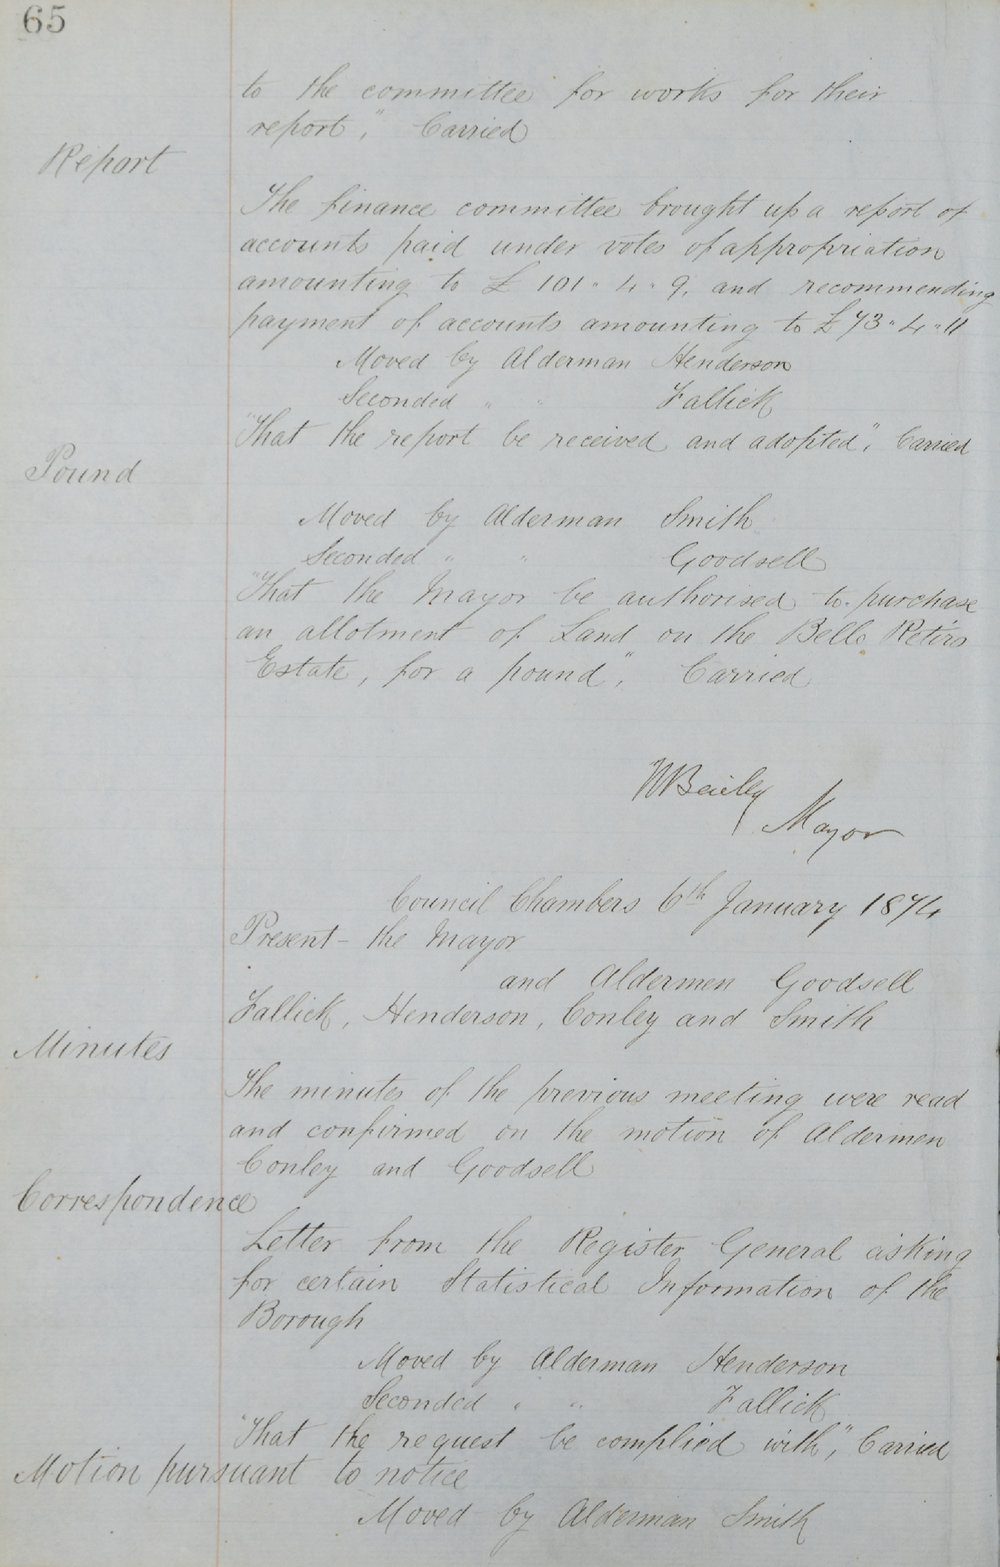 65
to the committee for works for their
report," Carried
Report
The finance committee brought up a report of
accounts paid under votes of appropriation
amounting to £ 101 " 4 " 9, and recommending
payment of accounts amounting to £73 " 4 " 11
Moved by Alderman Henderson
Seconded " " Fallick
"That the report be received and adopted", Carried
Pound
Moved by Alderman Smith
Seconded " " Goodsell
"That the Mayor be authorised to purchase
an allotment of Land on the Bell Retiro
Estate, for a pound", Carried
Mayor
Council Chambers 6th January 1874
Present - the Mayor
and Aldermen Goodsell
Fallick, Henderson, Conley and Smith
Minutes
The minutes of the previous meeting were read
and confirmed on the motion of Aldermen
Conley and Goodsell
Correspondence
Letter from the Register General asking
for certain Statistical Information of the
Borough
Moved by Alderman Henderson
Seconded " " Fallick
"That the request be complied with", Carried
Motion pursuant to notice
Moved by Alderman Smith